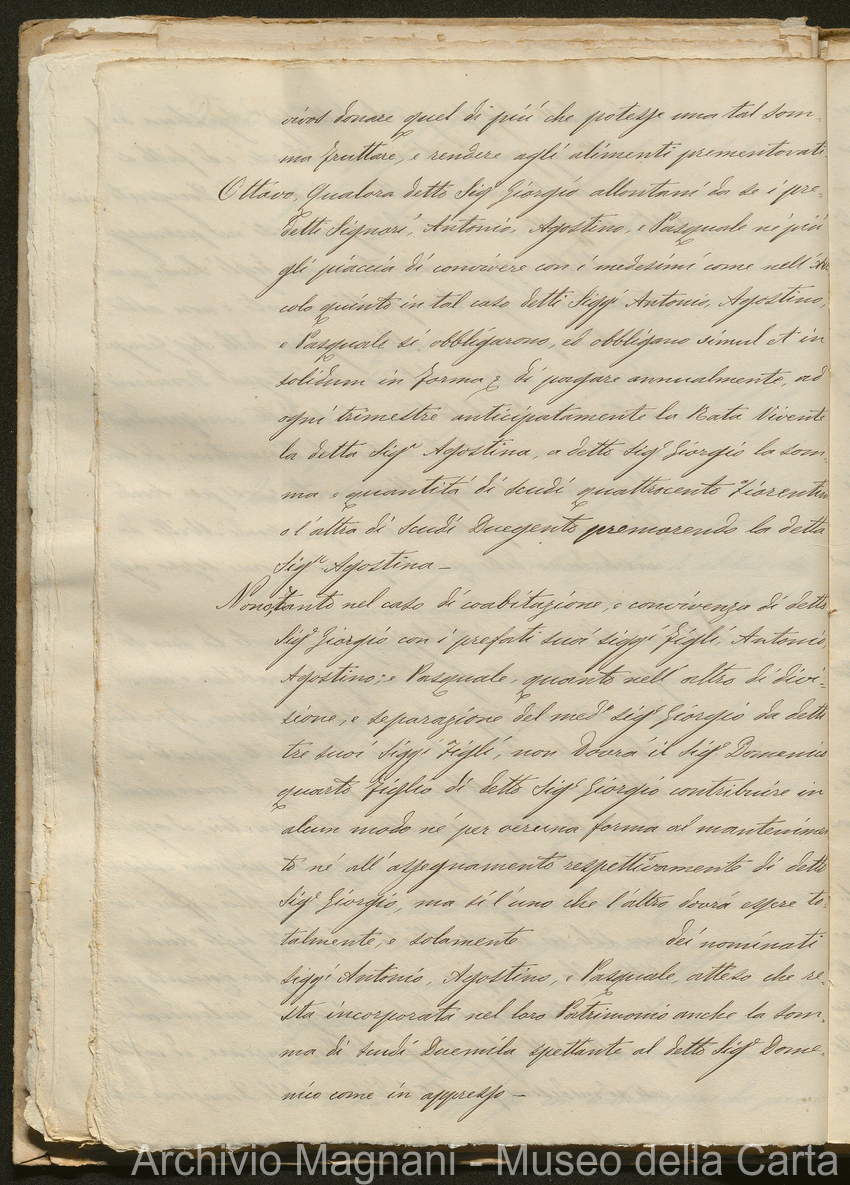 vivos donare quel di più che potesse una tal som-
ma fruttare, e rendere agli alimenti prementovati
Ottavo, Qualora detto Sigʳ Giorgio allontani da se i pre-
detti Signori, Antonio, Agostino, e Pasquale né più
gli piaccia di convivere con i medesimi come nell'Arti
colo quinto in tal caso detti Siggⁱ Antonio, Agostino,
e Pasquale si obbligarono, ed obbligano simul et in
solidum in forma di pagare annualmente, ad
ogni trimestre anticipatamente la Rata Vivente
la detta Sigʳᵃ Agostina, a detto Sigʳ Giorgio la som-
ma e quantità di scudi quattrocento Fiorentini
o l'altra di Scudi Duegento premorendo la detta
Sigʳᵃ Agostina —
Nono, tanto nel caso di coabitazione, e convivenza di detto
Sigʳ Giorgio con i prefati suoi siggⁱ figli, Antonio,
Agostino; e Pasquale, quanto nell'altro di divi-
sione, e separazione del medᵒ sigʳ Giorgio da detti
tre suoi Siggⁱ Figli, non dovrà il Sigʳ Domenico
quarto Figlio di detto Sigʳ Giorgio contribuire in
alcun modo né per veruna forma al mantenimen
to né all'assegnamento respettivamente di detto
Sigʳ Giorgio, ma sì l'uno che l'altro dovrà essere to-
talmente, e solamente dei nominati
siggⁱ Antonio, Agostino, e Pasquale, atteso che re-
sta incorporata nel loro Patrimonio anche la som-
ma di scudi Duemila spettante al detto Sigʳ Dome-
nico come in appresso —
Archivio Magnani - Museo della Carta